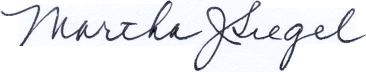 Martha J. Siegel